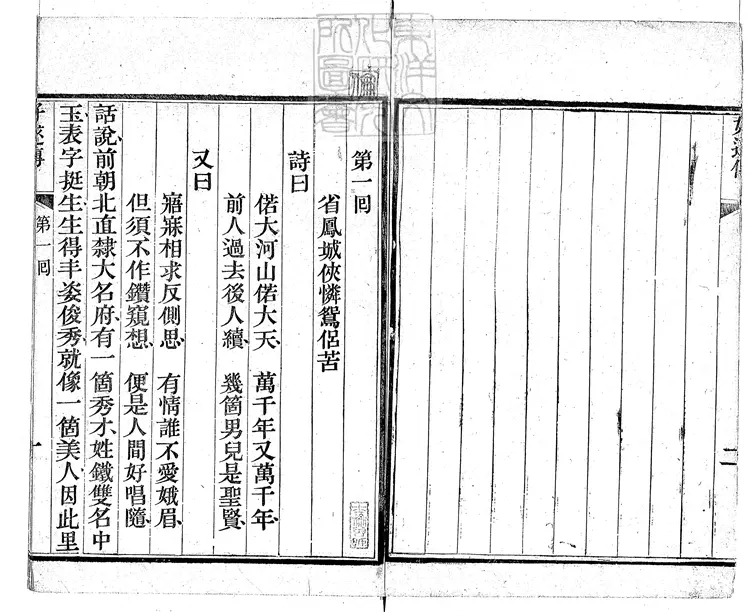 東洋文
化研究
所圖書
第一囘
省鳳城俠憐鴛侶苦
詩曰
偌大河山偌大天　萬千年又萬千年
前人過去後人續　幾箇男兒是聖賢
又曰
寤寐相求反側思　有情誰不愛娥眉
但須不作鑽窺想　便是人間好唱隨
話說前朝北直隸大名府有一箇秀才姓鐵雙名中
玉表字挺生生得丰姿俊秀就像一箇美人因此里
第一囘
一
二